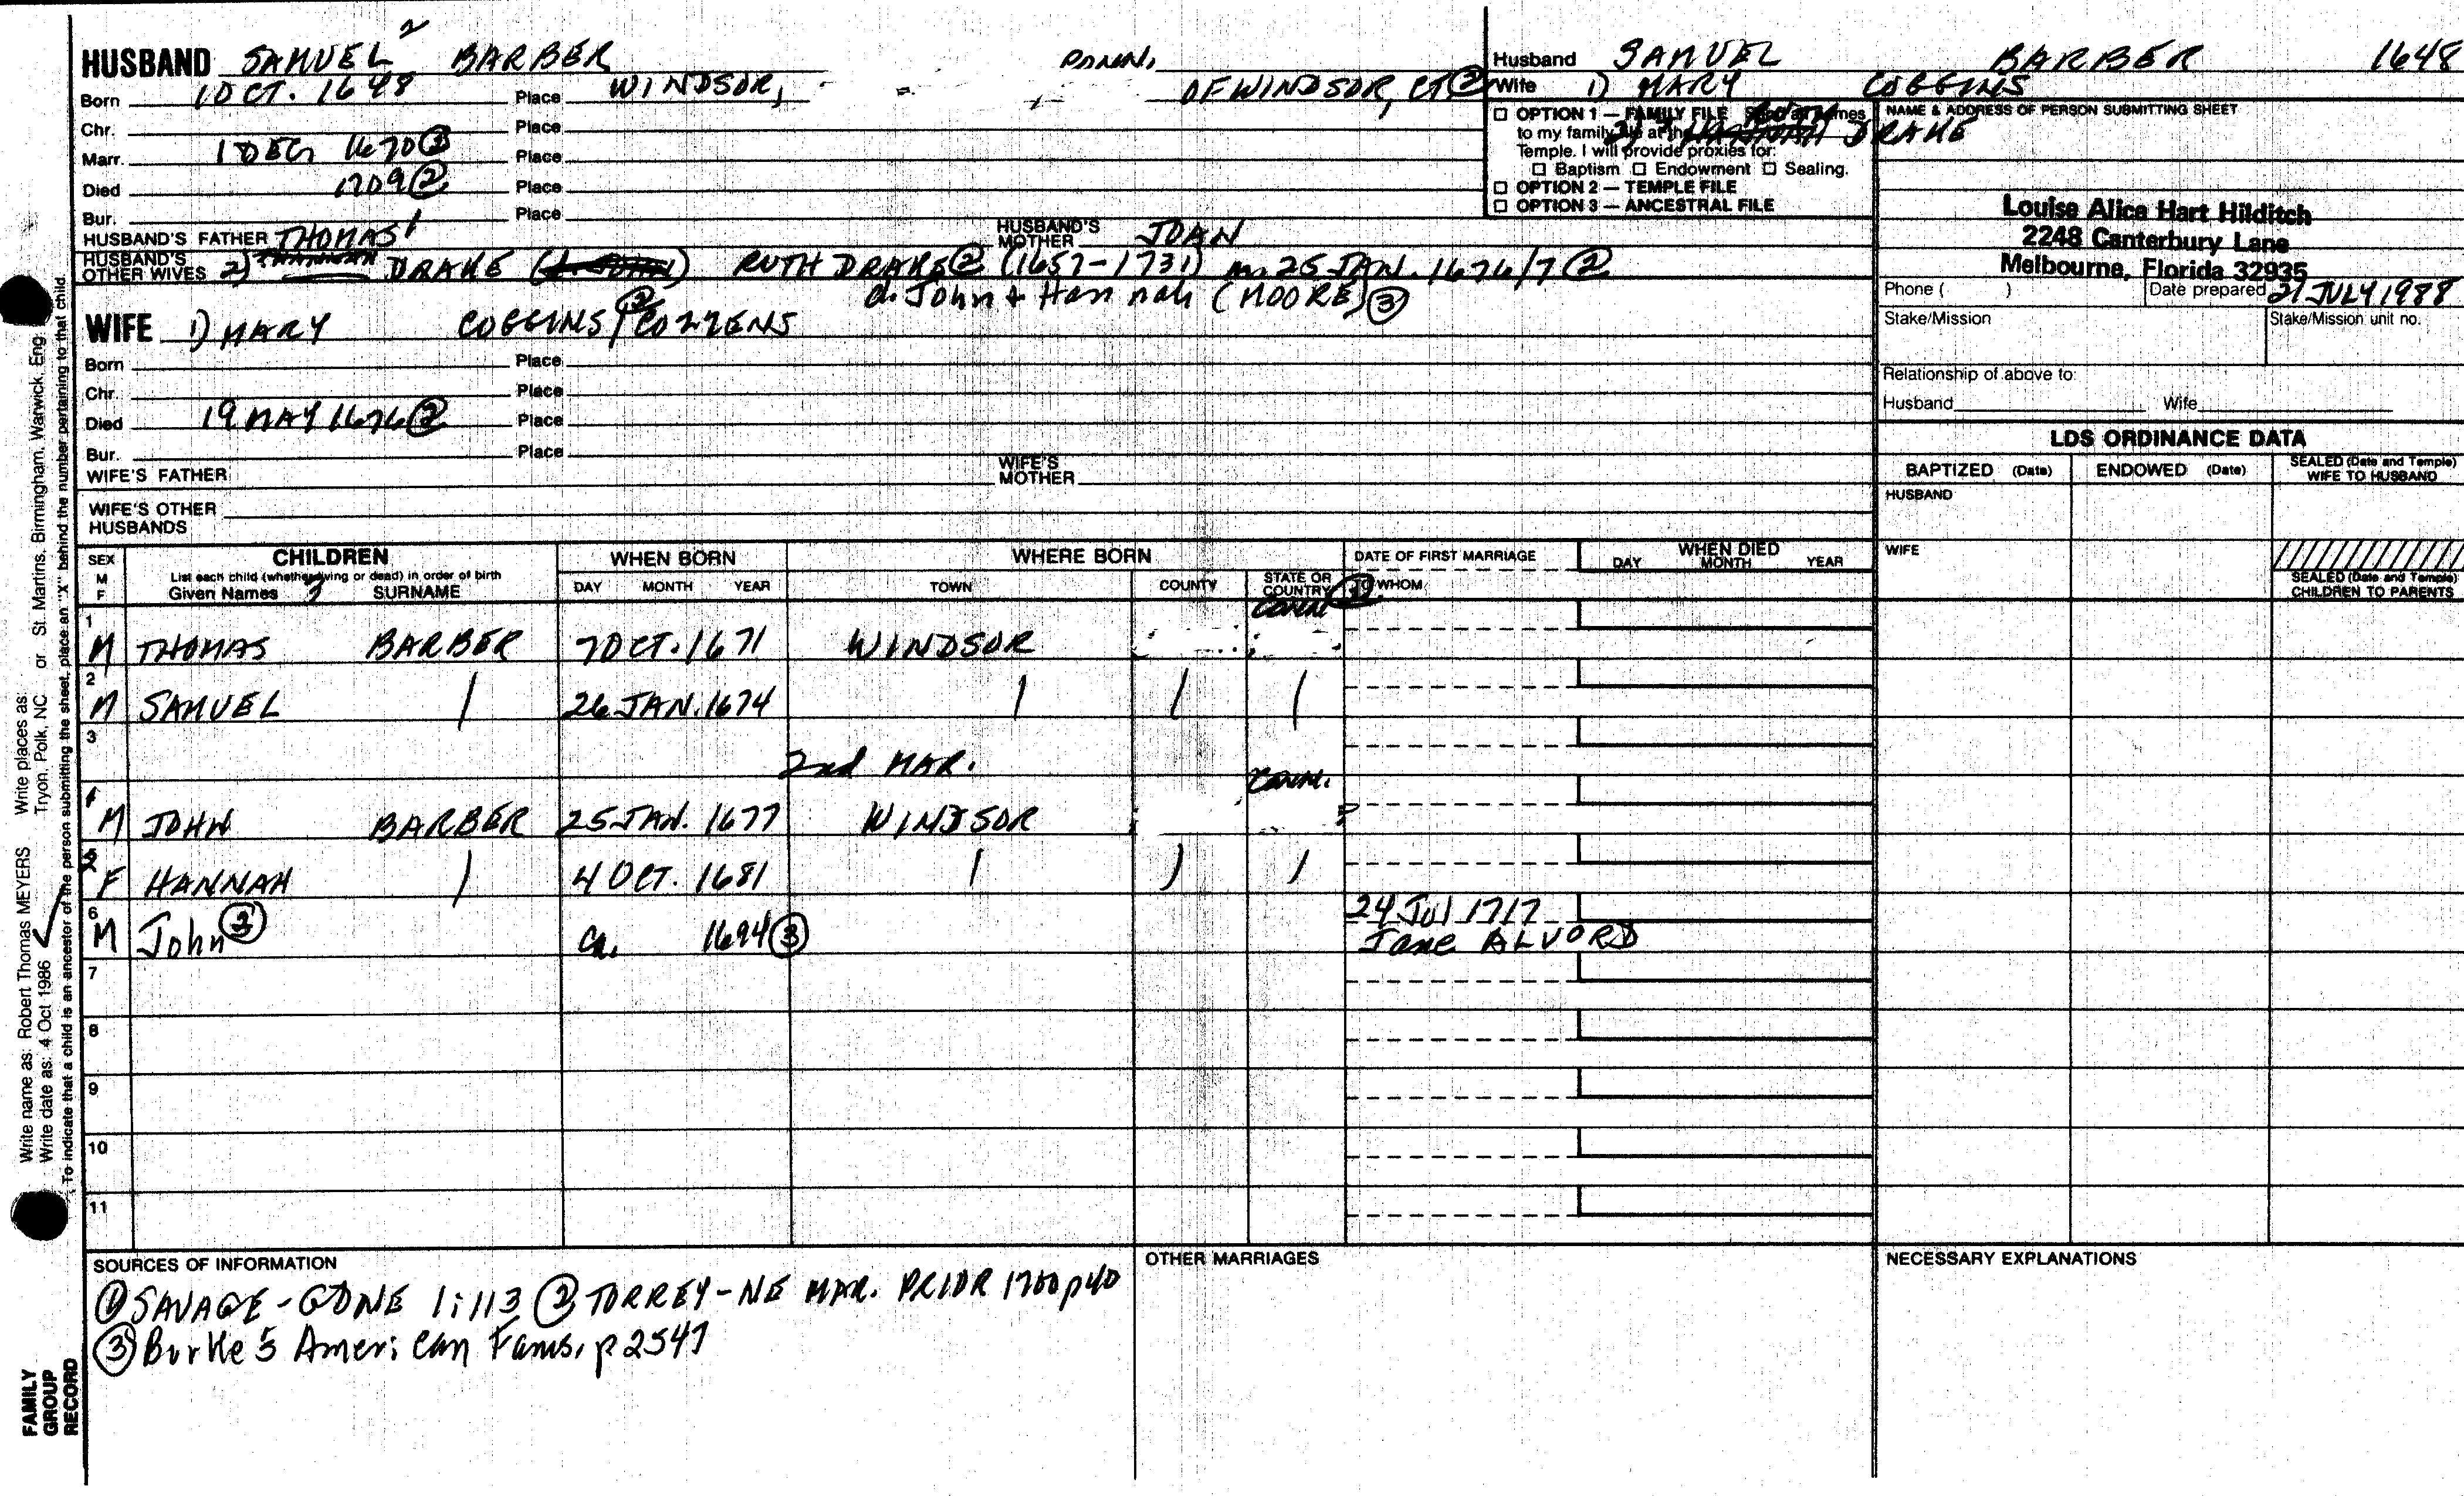 HUSBAND SAMUEL 2 BARBER CONN.
Born 1 OCT. 1648 Place WINDSOR, OF WINDSOR, CT ②
Chr. Place
Marr. 1 DEC 1670 ③ Place
Died 1709 ② Place
Bur. Place
HUSBAND'S FATHER THOMAS 1 HUSBAND'S MOTHER JOAN
HUSBAND'S OTHER WIVES 2) HANNAH DRAKE (d. JOHN) RUTH DRAKE ② (1657-1731) m. 25 JAN. 1676/7 ②
d. John + Hannah (MOORE) ③
WIFE 1) MARY COGGINS/COZZENS ②
Born Place
Chr. Place
Died 19 MAY 1676 ② Place
Bur. Place
WIFE'S FATHER WIFE'S MOTHER
WIFE'S OTHER HUSBANDS
Husband SAMUEL BARBER 1648
Wife 1) MARY COGGINS
2) HANNAH DRAKE
OPTION 1 — FAMILY FILE names
to my family at the
Temple. I will provide proxies for:
Baptism Endowment Sealing.
OPTION 2 — TEMPLE FILE
OPTION 3 — ANCESTRAL FILE
NAME & ADDRESS OF PERSON SUBMITTING SHEET
Louise Alice Hart Hilditch
2248 Canterbury Lane
Melbourne, Florida 32935
Phone ( ) Date prepared 21 JULY 1988
Stake/Mission Stake/Mission unit no.
Relationship of above to:
Husband Wife
LDS ORDINANCE DATA
BAPTIZED (Date) ENDOWED (Date) SEALED (Date and Temple) WIFE TO HUSBAND
HUSBAND
WIFE
SEALED (Date and Temple) CHILDREN TO PARENTS
SEX M F CHILDREN WHEN BORN WHERE BORN DATE OF FIRST MARRIAGE WHEN DIED
List each child (whether living or dead) in order of birth
Given Names 3 SURNAME DAY MONTH YEAR TOWN COUNTY STATE OR COUNTRY TO WHOM DAY MONTH YEAR
1 M THOMAS BARBER 7 OCT. 1671 WINDSOR CONN
2 M SAMUEL | 26 JAN. 1674 | | |
3
2nd MAR.
M JOHN BARBER 25 JAN. 1677 WINDSOR CONN.
F HANNAH | 4 OCT. 1681 | | |
6 M John ③ Ca. 1694 ③ 24 Jul 1717
Jane ALVORD
7
8
9
10
11
SOURCES OF INFORMATION
① SAVAGE - GDNE 1:113 ② TORREY - NE MAR. PRIOR 1700 p40
③ Burke's American Fams. p 2547
OTHER MARRIAGES
NECESSARY EXPLANATIONS
Write name as: Robert Thomas MEYERS Write places as: St. Martins, Birmingham, Warwick, Eng
Write date as: 4 Oct 1986 Tryon, Polk, NC or
To indicate that a child is an ancestor of the person submitting the sheet, place an "X" behind the number pertaining to that child.
FAMILY
GROUP
RECORD